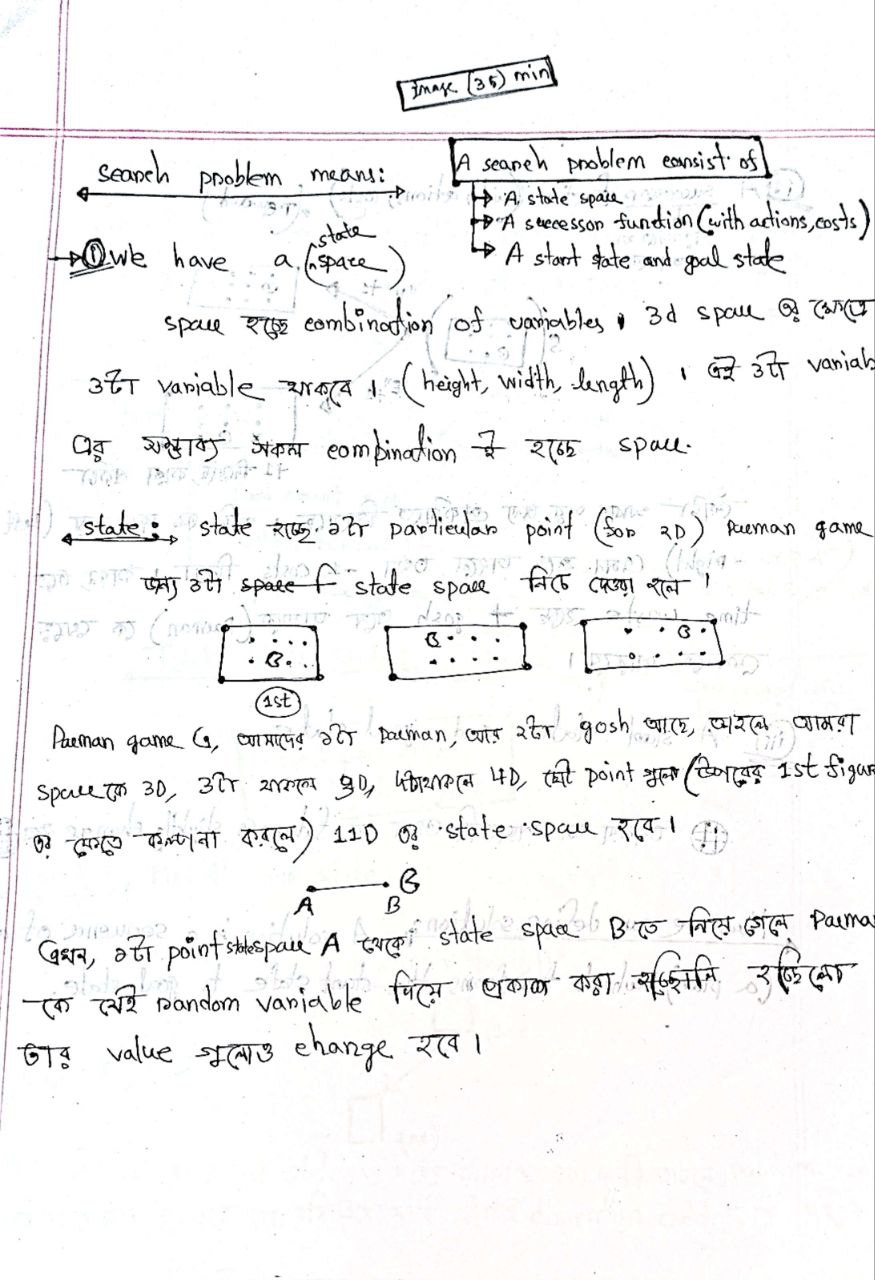 Image (35) min
search problem means:
A search problem consist of
A state space
A successor function (with actions, costs)
A start state and goal state
① we have a (n state space)
space হচ্ছে combination of variables । 3d space এর ক্ষেত্রে
৩টা variable থাকবে । (height, width, length) । এই ৩টা variab
এর সম্ভাব্য সকল combination ই হচ্ছে space.
state : state হচ্ছে ১টা particular point (for 2D) Pacman game
জন্য ৩টা state space নিচে দেওয়া হলে ।
1st
Pacman game এ, আমাদের ১টা pacman, আর ২টা gosh আছে, তাহলে আমরা
space কে 3D, ৩টা থাকলে 4D, point গুলো (উপরের 1st figur
এর ক্ষেত্রে কল্পনা করলে) 11D এর state space হবে ।
A B
এখন, ১টা point state space A থেকে state space B তে নিয়ে গেলে Pacma
কে যেই random variable দিয়ে প্রকাশ করা হচ্ছিলো
তার value গুলোও change হবে ।